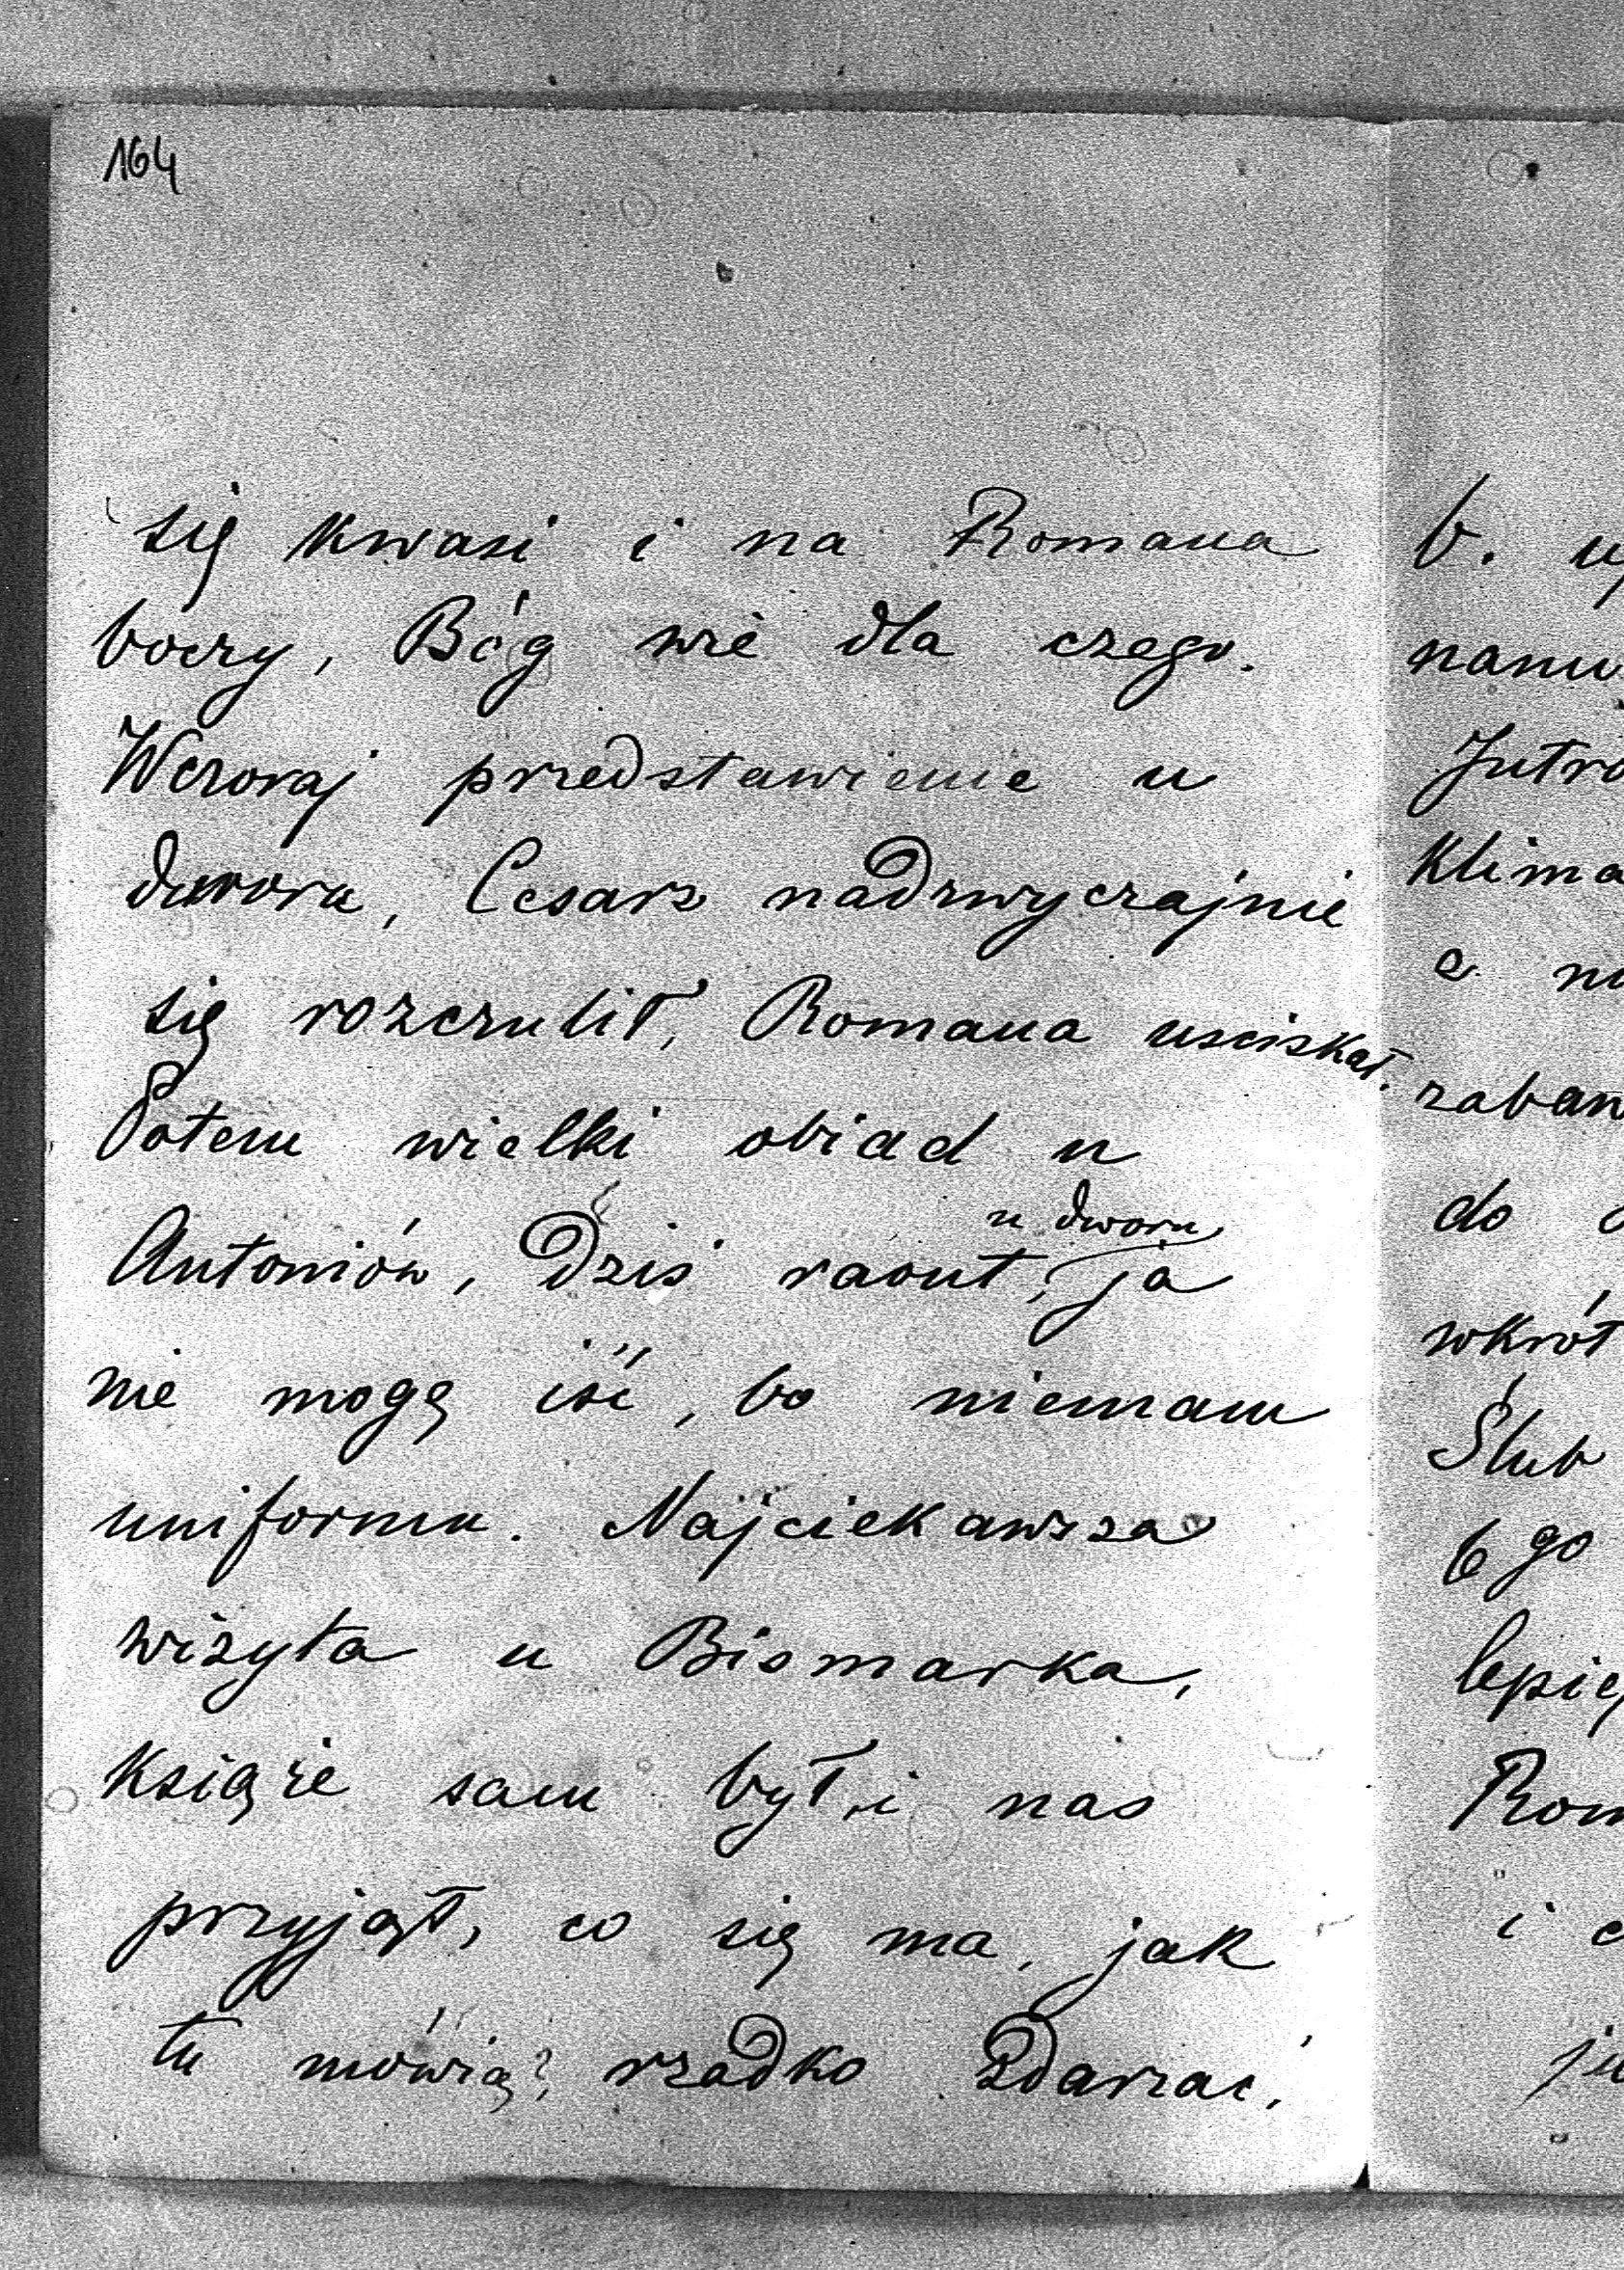 164
się kwasi i na Romana
boczy, Bóg wie dla czego.
Wczoraj przedstawienie u
dworu, Cesarz nadzwyczajnie
się rozczulił, Romana uściskał.
Potem wielki obiad u
Antoniów, Dziś raout, u dworu ja
nie mogę iść, bo niemam
uniformu. Najciekawsza
wizyta u Bismarka,
książe sam był i nas
przyjął, co się ma, jak
tu mówią, rzadko zdarzać,
b.
Jutro
do
Ślub
6 go
i